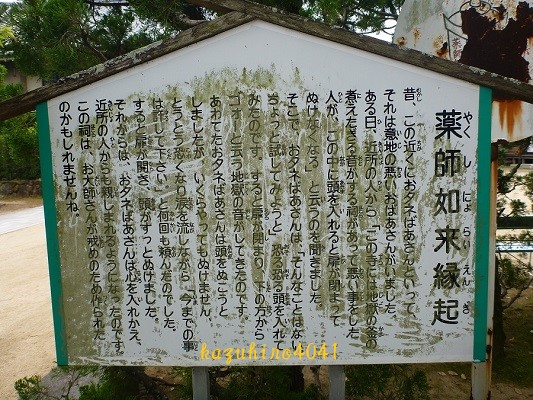 薬師如来縁起
やくしにょらいえんぎ
昔、この近くにおタネばあさんといって、
それは意地の悪いおばあさんがいました。
ある日、近所の人から、「この寺には地獄の釜の
煮えたぎる音がする祠があって悪い事をした
人が、この中に頭を入れると扉が閉まって
ぬけなくなる」と云うのを聞きました。
そこで、おタネばあさんは、「そんなことはない
ちょっと試してみよう」と、恐る恐る頭を入れて
みたのです。すると扉が閉まり、下の方から
ゴオーと云う地獄の音がしてきたのです。
あわてたおタネばあさんは頭をぬこうと
しましたが、いくらやってもぬけません。
とうとう恐くなり涙を流しながら、「今までの事
は許して下さい」と何回も頼んだのでした。
すると扉が開き、頭がすっとぬけました。
それからは、おタネばあさんは心を入れかえ、
近所の人からも親しまれるようになったのです。
この祠は、お大師さんが戒めのため作られた
のかもしれませんね。
kazuhiro4041